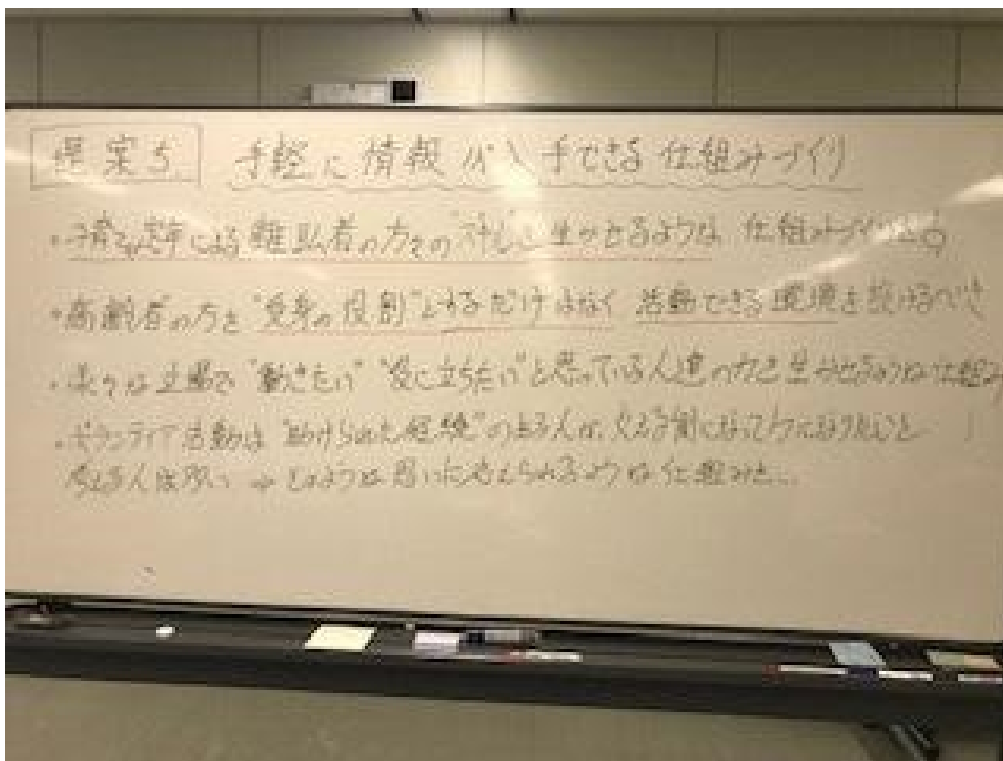 提案5 手軽に情報が入手できる仕組みづくり
・子育てや定年による離職者の方々の"スキル"を生かせるような 仕組みづくりが必要
・高齢者の方を"受身の役割"とするだけではなく 活動できる環境を設けるべき
・様々な立場で"動きたい""役に立ちたい"と思っている人達の力を生かせるような仕組み
・ボランティア活動は"助けられた経験"のある人が、
考える人は多い → そのような思いに応えられるような仕組みを…